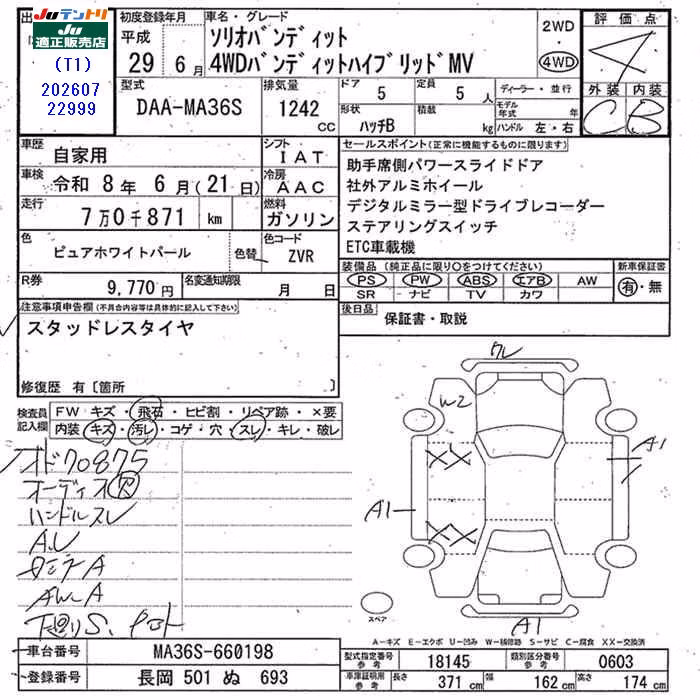 出
JU テントリ
JU 適正販売店
(T1)
202607
22999
初度登録年月
平成
29 6月
車名・グレード
ソリオバンディット
4WDバンディットハイブリッドMV
2WD
・
4WD
評価点
4
外装 内装
C B
型式
DAA-MA36S
排気量
1242
CC
ドア 5
定員 5 人
ディーラー・並行
形状 ハッチB
積載 kg
モデル年式 年
ハンドル 左・右
車歴 自家用
シフト IAT
車検 令和 8年 6月(21日)
冷房 AAC
走行 7万0千871 km
燃料 ガソリン
色 ピュアホワイトパール
色替
色コード ZVR
R券 9,770円
名変通知期限 月 日
セールスポイント(正常に機能するものに限ります)
助手席側パワースライドドア
社外アルミホイール
デジタルミラー型ドライブレコーダー
ステアリングスイッチ
ETC車載機
装備品(純正品に限り○をつけてください)
新車保証書
PS PW ABS エアB AW
有・無
SR ナビ TV カワ
後日品 保証書・取説
注意事項申告欄(不具合内容等は具体的に記入して下さい)
スタッドレスタイヤ
修復歴 有〔箇所 〕
検査員記入欄
FW キズ・飛石・ヒビ割・リペア跡・×要
内装 キズ・汚レ・コゲ・穴・スレ・キレ・破レ
オド70875
オーディオ欠
ハンドルスレ
A.U
AW A
下廻りS.
ワレ
W2
XX
XX
A1
A1
A1
スペア
A-キズ E-エクボ U-凹み W-補修跡 S-サビ C-腐食 XX-交換済
車台番号 MA36S-660198
登録番号 長岡 501 ぬ 693
型式指定番号 参考 18145
類別区分番号 参考 0603
車庫証明用 参考 長さ 371 cm 幅 162 cm 高さ 174 cm